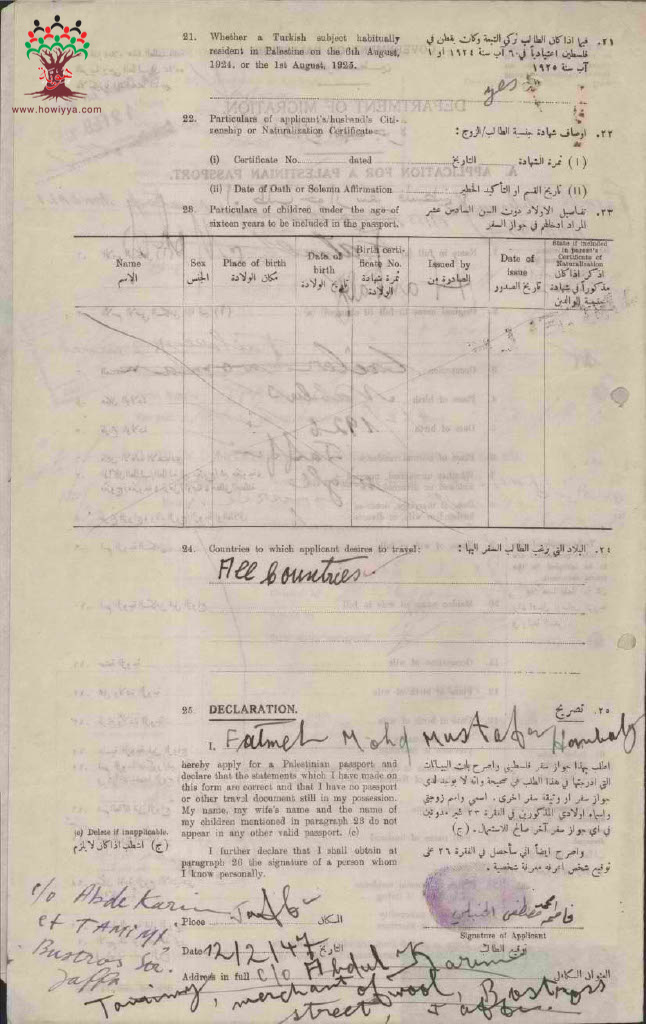 www.howiyya.com
21. Whether a Turkish subject habitually resident in Palestine on the 6th August, 1924, or the 1st August, 1925.
٢١. فيما اذا كان الطالب تركي التبعة وكان يقطن في فلسطين اعتيادياً في ٦ آب سنة ١٩٢٤ او ١ آب سنة ١٩٢٥
yes
22. Particulars of applicant's/husband's Citizenship or Naturalization Certificate
٢٢. اوصاف شهادة جنسية الطالب/الزوج :
(i) Certificate No. dated
التاريخ (١) نمرة الشهادة
(ii) Date of Oath or Solemn Affirmation
(١١) تاريخ القسم او التأكيد الخطير
23. Particulars of children under the age of sixteen years to be included in the passport.
٢٣. تفاصيل الاولاد دون السن السادس عشر المراد ادخالهم في جواز السفر
Name الاسم
Sex الجنس
Place of birth مكان الولادة
Date of birth تاريخ الولادة
Birth certificate No. نمرة شهادة الولادة
Issued by الصادرة من
Date of issue تاريخ الصدور
State if included in parent's Certificate of Naturalization اذكر اذا كان مذكوراً في شهادة جنسية الوالدين
24. Countries to which applicant desires to travel:
٢٤. البلاد التي يرغب الطالب السفر اليها :
All Countries
25. DECLARATION.
٢٥. تصريح
I, Fatmeh Mohd Mustafa Hambali
hereby apply for a Palestinian passport and
declare that the statements which I have made on
this form are correct and that I have no passport
or other travel document still in my possession.
My name, my wife's name and the name of
my children mentioned in paragraph 23 do not
appear in any other valid passport. (c)
اطلب بهذا جواز سفر فلسطيني واصرح بان البيانات
التي ادرجتها في هذا الطلب هي صحيحة وانه لا يوجد لدي
جواز سفر او وثيقة سفر اخرى. اسمي واسم زوجتي
واسماء اولادي المذكورين في الفقرة ٢٣ غير مدونين
في اي جواز سفر آخر صالح للاستعمال. (ج)
(c) Delete if inapplicable.
(ج) اشطب اذا كان لا يلزم
I further declare that I shall obtain at
paragraph 26 the signature of a person whom
I know personally.
واصرح ايضاً اني سأحصل في الفقرة ٢٦ على
توقيع شخص اعرفه معرفة شخصية.
c/o Abdel Karim
et TAMIMI
Bustros Str.
Jaffa
Place Jaffa المكان
فاطمة محمد مصطفى الحنبلي
Signature of Applicant
توقيع الطالب
Date 12/2/47 التاريخ
Address in full c/o Abdul Karim العنوان الكامل
Tamimy, merchant of wool, Bostross
street, Jaffa.